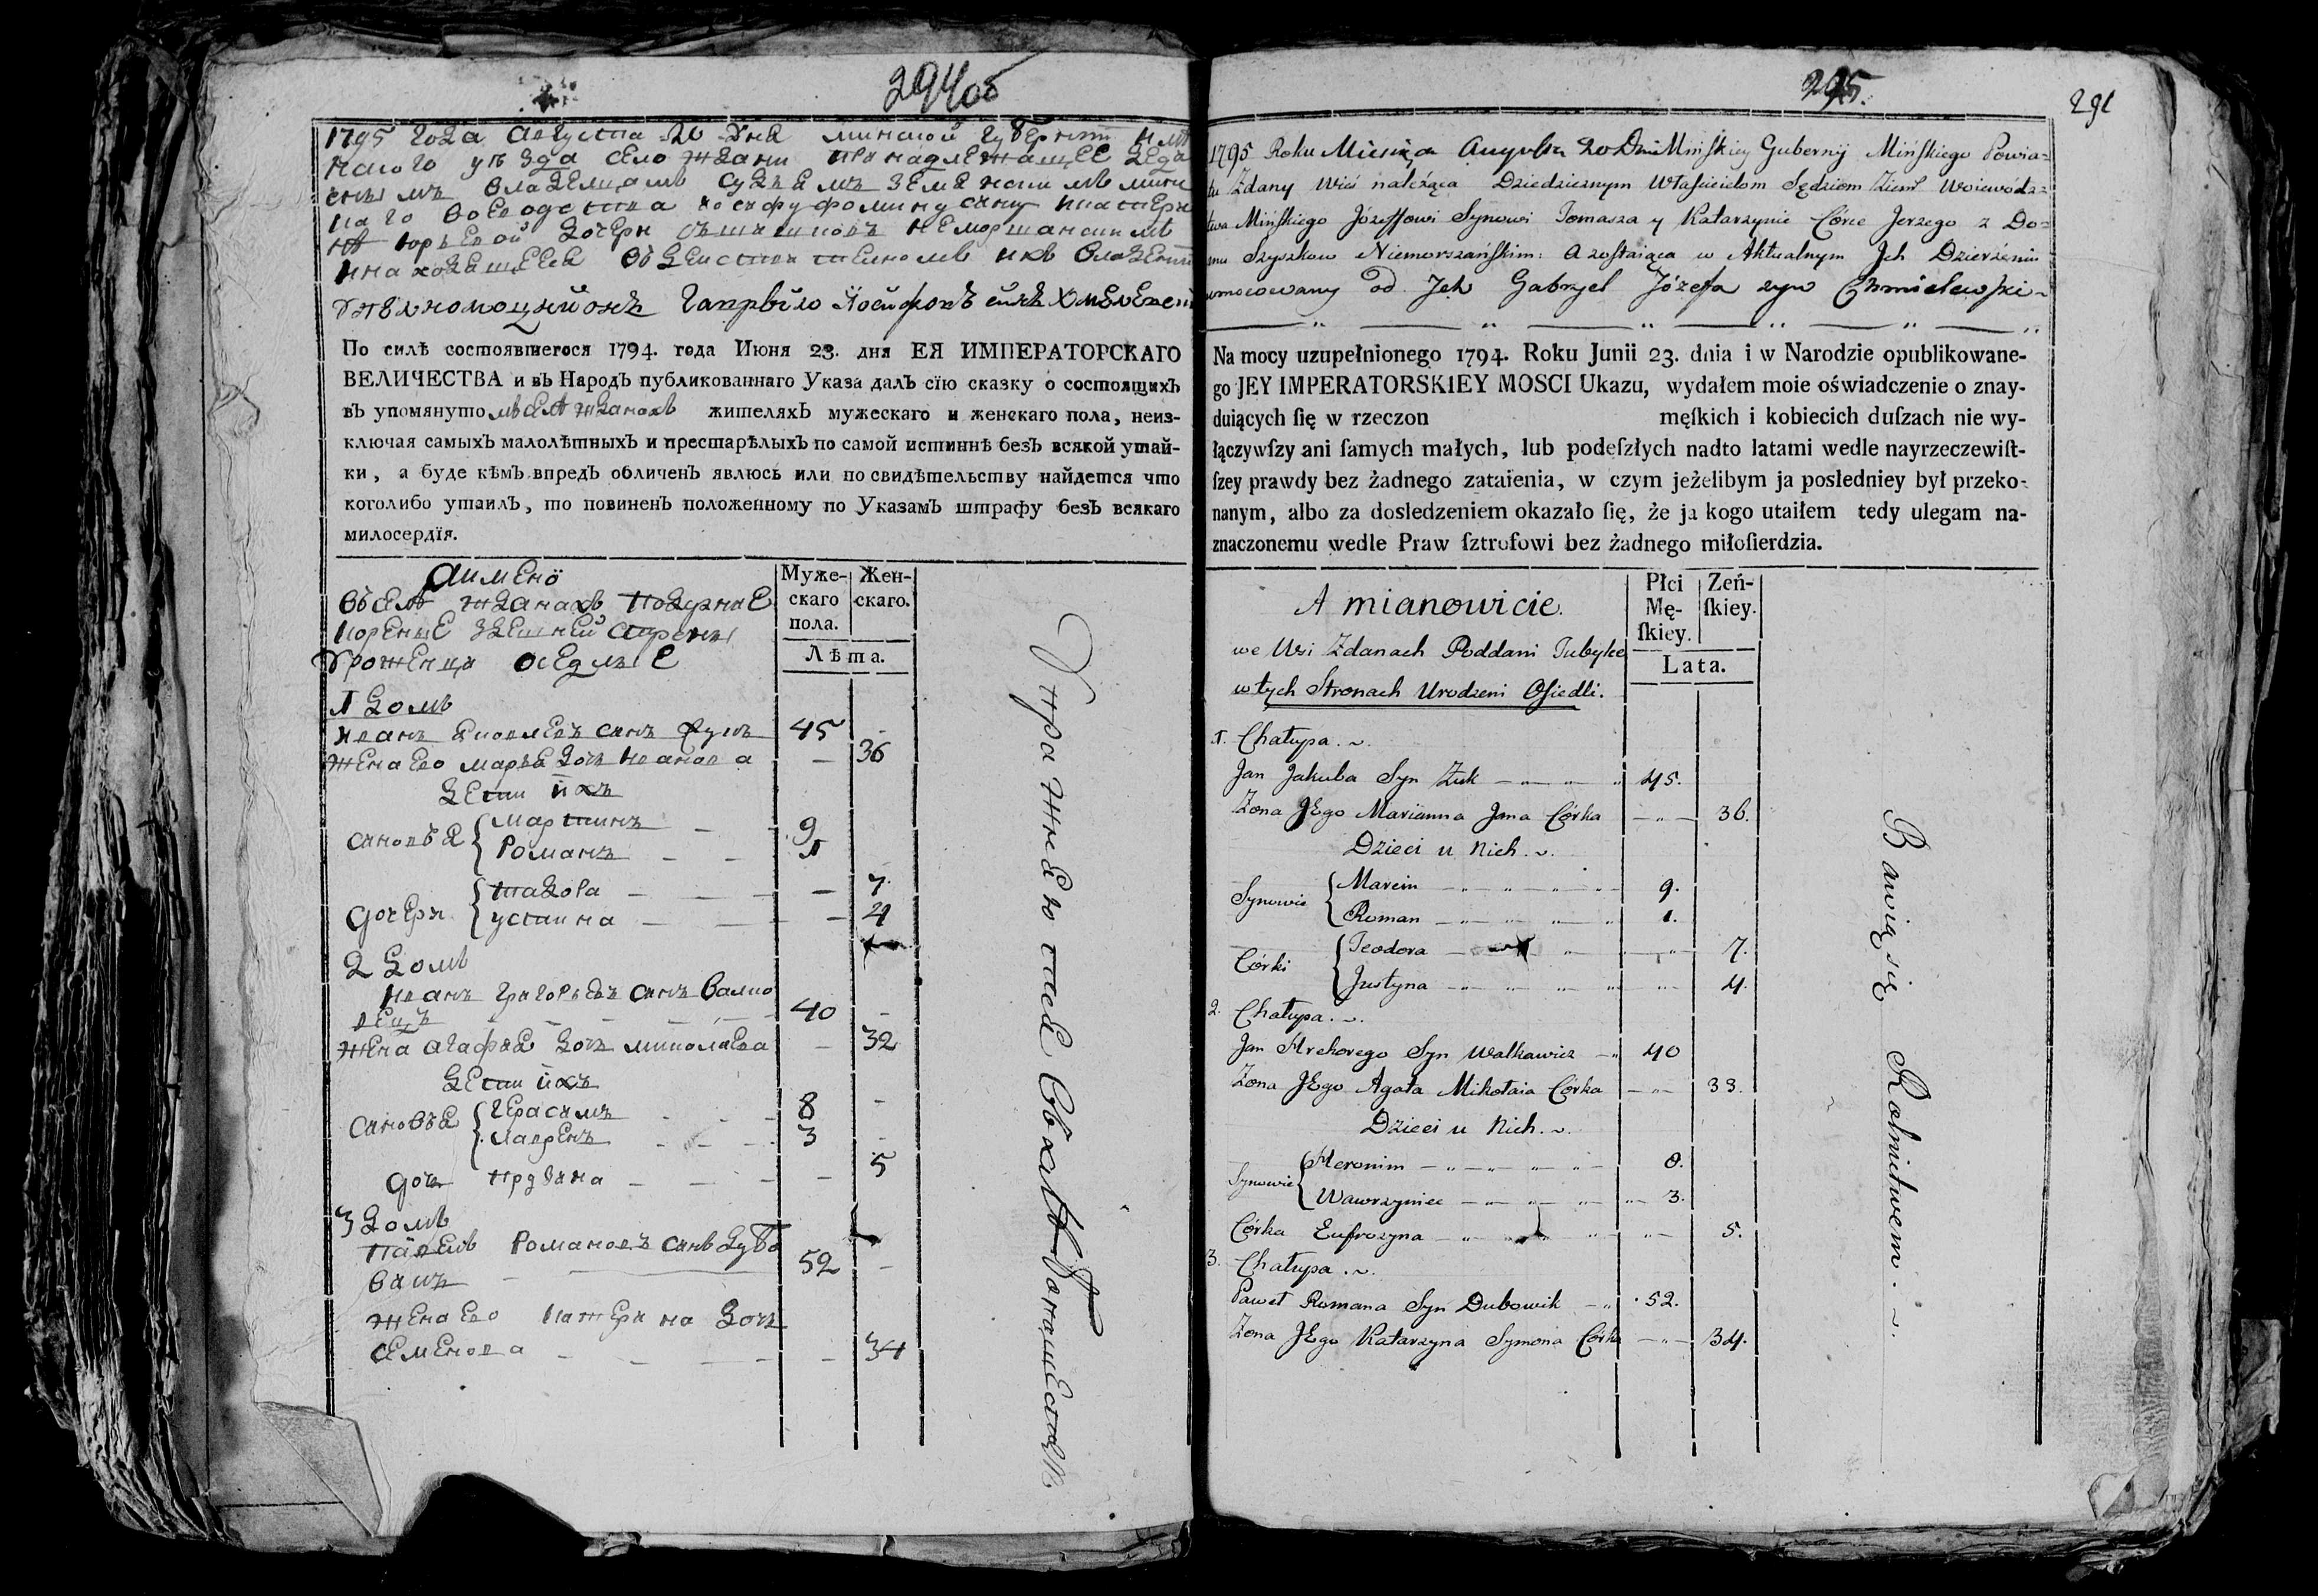 294об
1795 года Августа 20 дня минской губернии и мин
скаго уезда село жданы принадлежащее
владелцамъ судьямъ земянскимъ минс
каго воеводства иосифу фомину сыну
юрьевой дочери
имаходящееся въ действителномъ ихъ владении
Уполномоцнионъ Гаврыло Иосифовъ синъ Хмелевски
По силѣ состоявшегося 1794. года Июня 23. дня ЕЯ ИМПЕРАТОРСКАГО
ВЕЛИЧЕСТВА и въ Народъ публикованнаго Указа далъ сїю сказку о состоящихъ
въ упомянуто мъ селѣ жданахъ жителяхъ мужескаго и женскаго пола, неиз-
ключая самыхъ малолѣтныхъ и престарѣлыхъ по самой истиннѣ безъ всякой утай-
ки, а буде кѣмъ впредь обличенъ явлюсь или по свидѣтельству найдется что
коголибо утаилъ, то повиненъ положенному по Указамъ штрафу безъ всякаго
милосердїя.
Аимено
въ селѣ жданахъ подданые
коренные здешней стороны
Уроженцы оседлые
Муже-
скаго
пола.
Жен-
скаго.
Лѣта.
1 домъ
Иванъ яковлевъ сынъ жукъ 45 -
жена его марья дочь иванова — 36
дети ихъ
сыновья { мартинъ — — 9
романъ — — 1
дочери { тадора — — — 7
устина — — — 4
2 домъ
иванъ григорьевъ сынъ валко
вецъ — — — 40 -
жена агафья дочь миколаева — 32
дети ихъ
сыновья { герасимъ 8 -
лавренъ 3 -
дочь прузына — — — 5
3 домъ
павелъ романовъ сынъ дубо
викъ — 52 -
жена его катерина дочь
семенова — — — 34
Упражняются въ хлебопашестве
295.
291
1795 Roku Miesiąca Augusta 20 Dnia Mińskiey Gubernij Mińskiego Powia=
tu Zdany Wieś należąca Dziedzicznym Właścicielom Sędziom Ziem Woiewódz=
twa Mińskiego Józeffowi Synowi Tomasza y Katarzynie Córce Jerzego z Do=
mu Szyszkow Niemorszańskim: A zostaiąca w Aktualnym Jch Dzierżeniu
umocowany od Jch Gabryel Józefa syn Chmielewski ~
Na mocy uzupełnionego 1794. Roku Junii 23. dnia i w Narodzie opublikowane-
go JEY IMPERATORSKIEY MOSCI Ukazu, wydałem moie oświadczenie o znay-
duiących ſię w rzeczon męſkich i kobiecich duſzach nie wy-
łączywſzy ani ſamych małych, lub podeſzłych nadto latami wedle nayrzeczewiſt-
ſzey prawdy bez żadnego zataienia, w czym jeżelibym ja posledniey był przeko-
nanym, albo za dosledzeniem okazało ſię, że ja kogo utaiłem tedy ulegam na-
znaczonemu wedle Praw ſztrofowi bez żadnego miłoſierdzia.
A mianowicie.
we Wsi Zdanach Poddani Tubylce
w tych Stronach Urodzeni Osiedli.
Płci
Mę-
ſkiey.
Zeń-
ſkiey.
Lata.
1. Chałupa. ~
Jan Jakuba Syn Żuk 45.
Zona JEgo Marianna Jana Córka 36.
Dzieci u Nich. ~
Synowie { Marcin 9.
Roman 1.
Córki { Teodora 7.
Justyna 4.
2. Chałupa. ~
Jan Hrehorego Syn Walkawicz 40
Zona JEgo Agata Mikołaia Córka 33.
Dzieci u Nich. ~
Synowie { Heronim 8.
Wawrzyniec 3.
Córka Eufrozyna 5.
3. Chałupa. ~
Paweł Romana Syn Dubowik 52.
Zona JEgo Katarzyna Symona Córka 34.
Bawią się Rolnictwem. ~